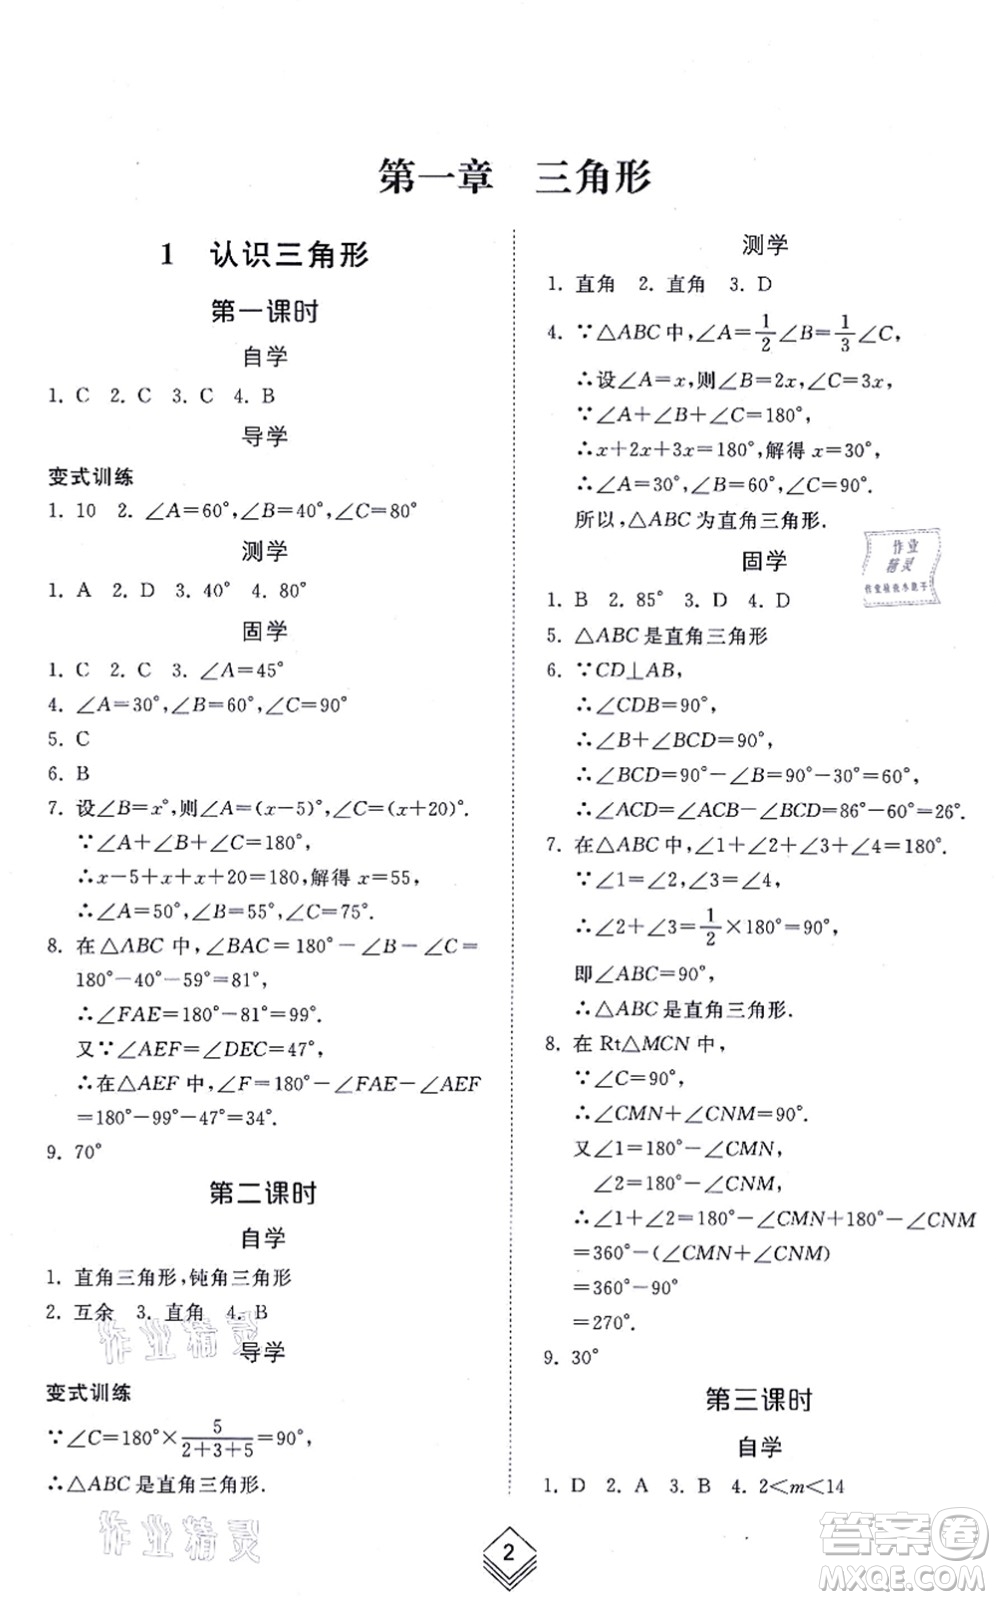 第一章 三角形
1 认识三角形
第一课时
自学
1. C 2. C 3. C 4. B
导学
变式训练
1. 10 2. ∠A=60°,∠B=40°,∠C=80°
测学
1. A 2. D 3. 40° 4. 80°
固学
1. C 2. C 3. ∠A=45°
4. ∠A=30°,∠B=60°,∠C=90°
5. C
6. B
7. 设∠B=x°,则∠A=(x-5)°,∠C=(x+20)°.
∵∠A+∠B+∠C=180°,
∴x-5+x+x+20=180,解得 x=55,
∴∠A=50°,∠B=55°,∠C=75°.
8. 在△ABC 中,∠BAC=180°-∠B-∠C=
180°-40°-59°=81°,
∴∠FAE=180°-81°=99°.
又∵∠AEF=∠DEC=47°,
∴在△AEF 中,∠F=180°-∠FAE-∠AEF
=180°-99°-47°=34°.
9. 70°
第二课时
自学
1. 直角三角形,钝角三角形
2. 互余 3. 直角 4. B
导学
变式训练
∵∠C=180°×5/(2+3+5)=90°,
∴△ABC是直角三角形.
测学
1. 直角 2. 直角 3. D
4. ∵△ABC中,∠A=1/2∠B=1/3∠C,
∴设∠A=x,则∠B=2x,∠C=3x,
∵∠A+∠B+∠C=180°,
∴x+2x+3x=180°,解得 x=30°,
∴∠A=30°,∠B=60°,∠C=90°.
所以,△ABC为直角三角形.
固学
1. B 2. 85° 3. D 4. D
5. △ABC是直角三角形
6. ∵CD⊥AB,
∴∠CDB=90°,
∴∠B+∠BCD=90°,
∴∠BCD=90°-∠B=90°-30°=60°,
∴∠ACD=∠ACB-∠BCD=86°-60°=26°.
7. 在△ABC中,∠1+∠2+∠3+∠4=180°.
∵∠1=∠2,∠3=∠4,
∴∠2+∠3=1/2×180°=90°,
即∠ABC=90°,
∴△ABC是直角三角形.
8. 在 Rt△MCN 中,
∵∠C=90°,
∴∠CMN+∠CNM=90°.
又∠1=180°-∠CMN,
∠2=180°-∠CNM,
∴∠1+∠2=180°-∠CMN+180°-∠CNM
=360°-(∠CMN+∠CNM)
=360°-90°
=270°.
9. 30°
第三课时
自学
1. D 2. A 3. B 4. 2<m<14
2
作业
精灵
作业精灵
作业精灵
答案卷
MXQE.COM